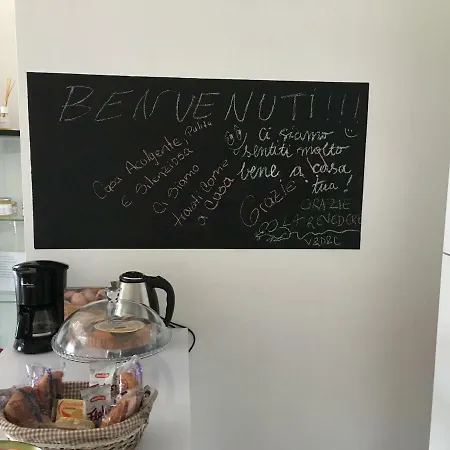 BENVENUTI!!!
Casa Acolgente, Pulita
E Silenziosa
Ci Siamo
trovati Come
a Casa
Ci siamo
sentiti molto
bene a casa
tua!
Grazie!
GRAZIE
ARREVEDERE